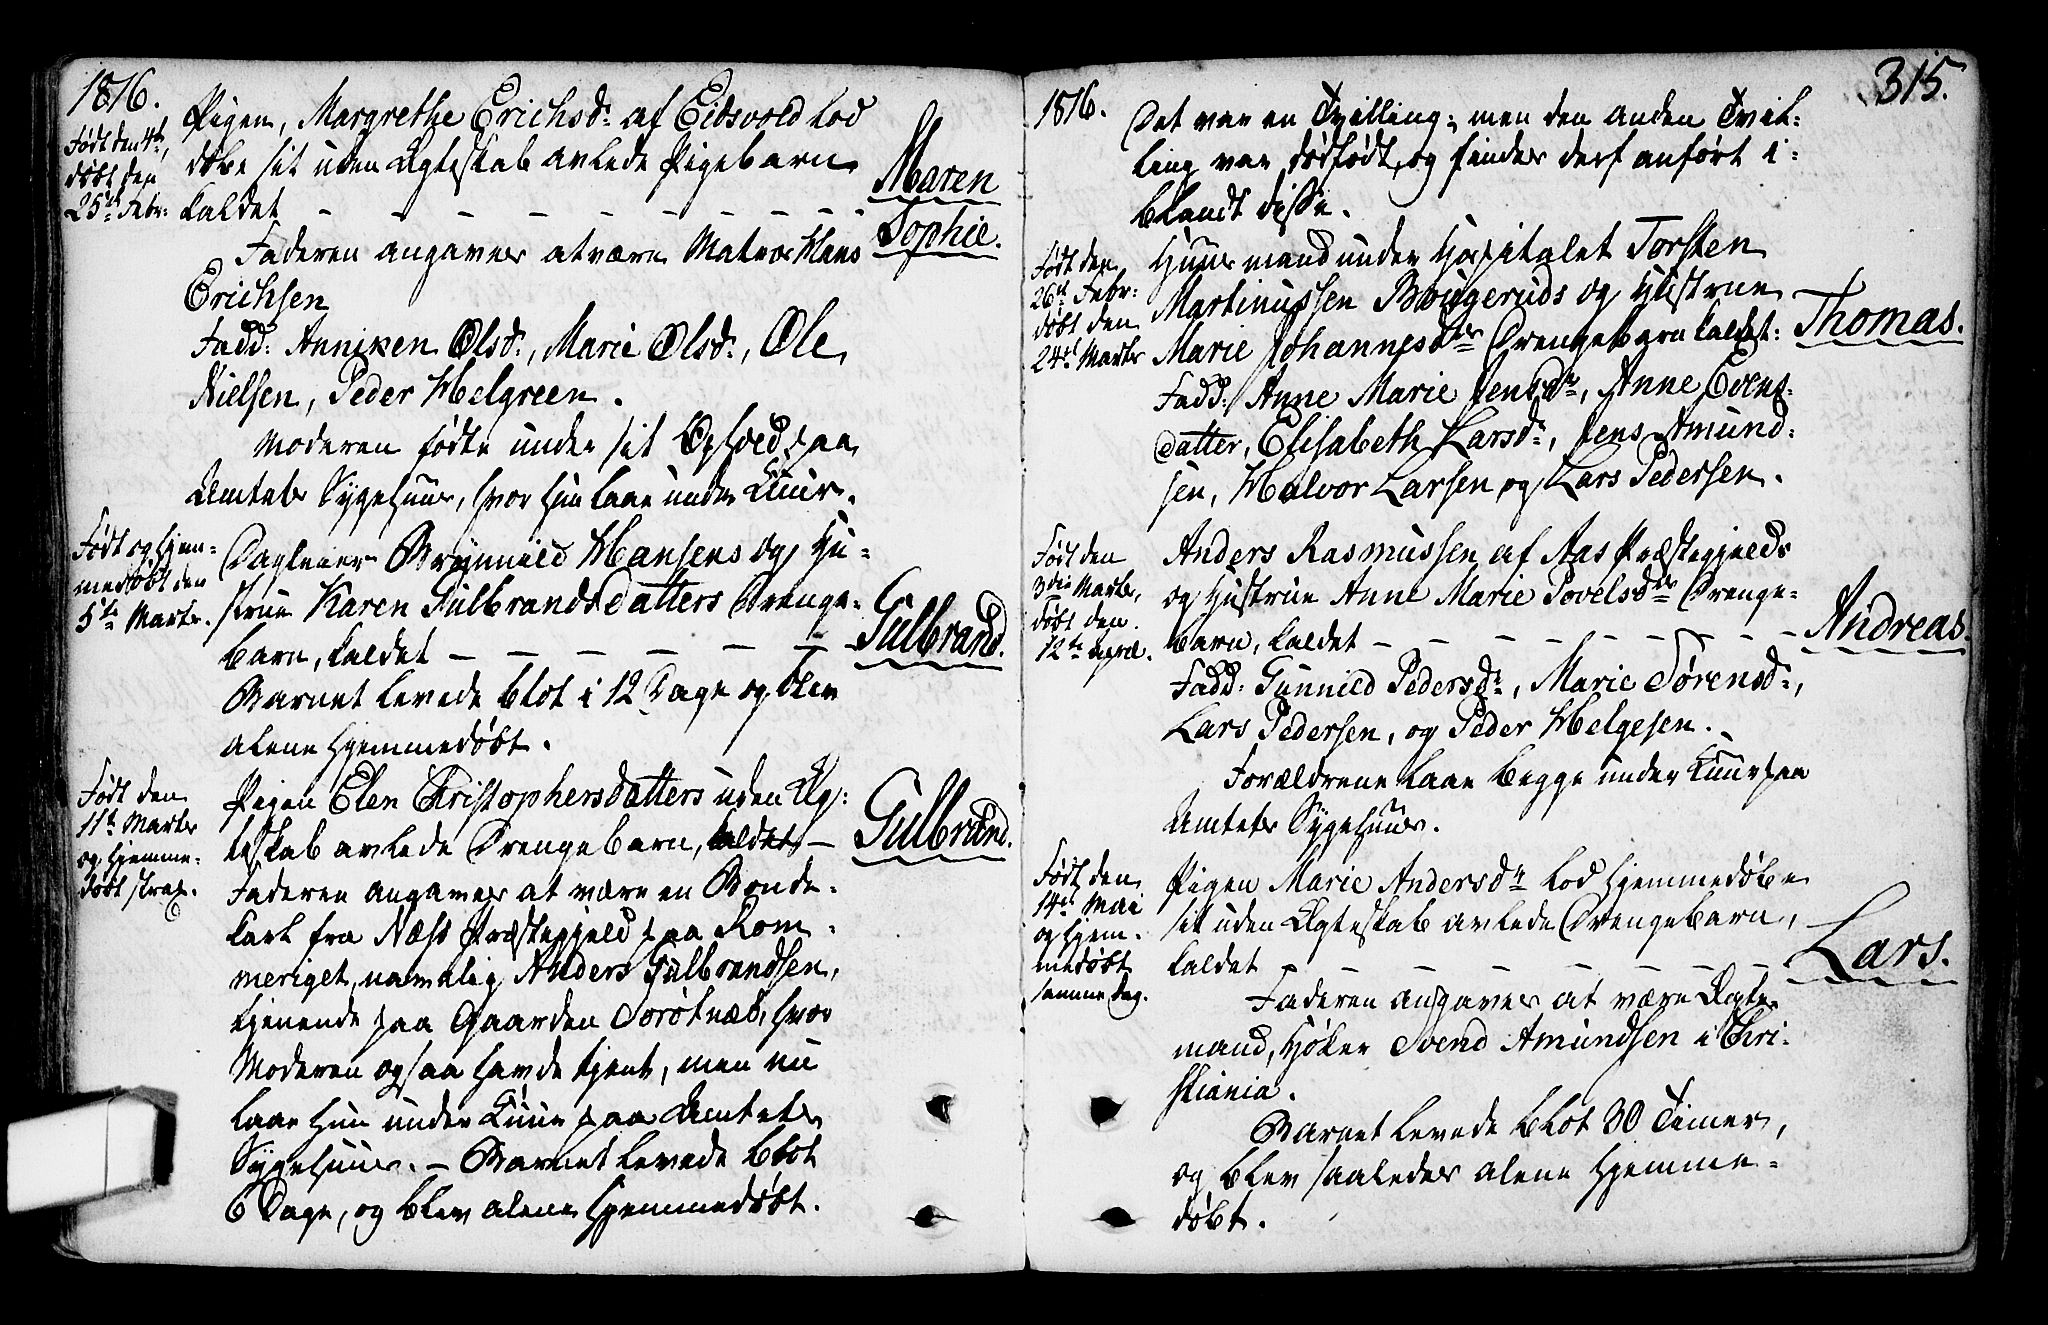 1816.
Pigen, Margrethe Erichsd: af Eidsvold lod
Født den 4de,
døbt den
25de Febr:
døbe sit uden Ægteskab avlede Pigebarn
kaldet - - - - - - - - -
Maren
Sophie.
Faderen angaves at være Matros Hans
Erichsen
Fadd: Anniken Olsd:, Marie Olsd:, Ole
Nielsen, Peder Helgreen.
Moderen fødte under sit Ophold paa
Amtets Sygehuus, hvor hun laae under Kuur.
Født og hjem=
medøbt den
5te Marts.
Dagleier Brynnild Hansens og Hu=
strue Karen Gulbrandsdatters Drenge=
barn, kaldet - - - - - -
Gulbrand.
Barnet levede blot i 12 Dage og blev
alene hjemmedøbt.
Født den
11te Marts
og hjemme=
døbt strax.
Pigen Elen Christophersdatters uden Æg=
teskab avlede Drengebarn, kaldet -
Gulbrand.
Faderen angaves at være en Bonde=
karl fra Næss Præstegjeld paa Rom=
meriget, namnlig Anders Gulbrandsen,
tjenende paa Gaarden hvor
Moderen ogsaa havde tjent, men nu
laae hun under Kuur paa Amtets
Sygehuus. - Barnet levede blot
6 Dage, og blev alene hjemmedøbt.
315.
1816.
Det var en Tvilling; men den anden Tvil=
ling var dødfødt, og findes derf anført i=
blandt disse.
Født den
26de Febr:
døbt den
24de Marts
Huusmand under Hospitalet Torsten
Martinussen Baugeruds og Hustrue
Marie Johannesdrs Drengebarn kaldet:
Thomas.
Fadd: Anne Marie Jensdr, Anne Evens=
datter, Elisabeth Larsdr, Jens Amund=
sen, Halvor Larsen og Lars Pedersen.
Født den
3die Marts,
døbt den
12te April.
Anders Rasmussen af Aas Præstegjelds
og Hustrue Anne Marie Povelsdrs Drenge=
barn, kaldet - - - - - - - -
Andreas.
Fadd: Gunnild Pedersdr, Marie Sørensd:,
Lars Pedersen, og Peder Helgesen. -
Forældrene laae begge under Kuur paa
Amtets Sygehuus.
Født den
14de Mai
og hjem=
medøbt
samme Dag.
Pigen Marie Andersdr lod hjemmedøbe
sit uden Ægteskab avlede Drengebarn,
kaldet - - - - - - - -
Lars.
Faderen angaves at være Ægte=
mand, Høker Svend Amundsen i Chri=
stiania.
Barnet levede blot 30 Timer,
og blev saaledes alene hjemme=
døbt.